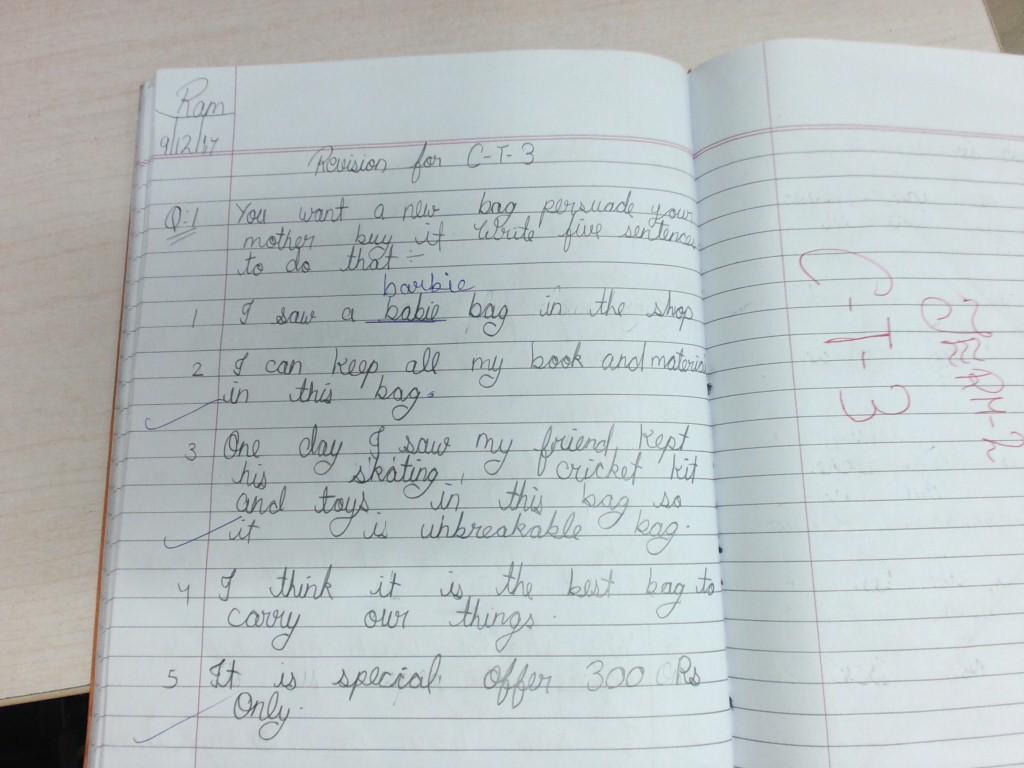 Ram
9/12/17
Revision for C-T-3
Q:1 You want a new bag persuade your
mother buy it write five sentences
to do that :-
barbie
1 I saw a babie bag in the shop
2 I can keep all my book and material
in this bag.
3 One day I saw my friend kept
his skating, cricket kit
and toys in this bag so
it is unbreakable bag.
4 I think it is the best bag to
carry our things.
5 It is special offer 300 Rs
Only.
C-T-3